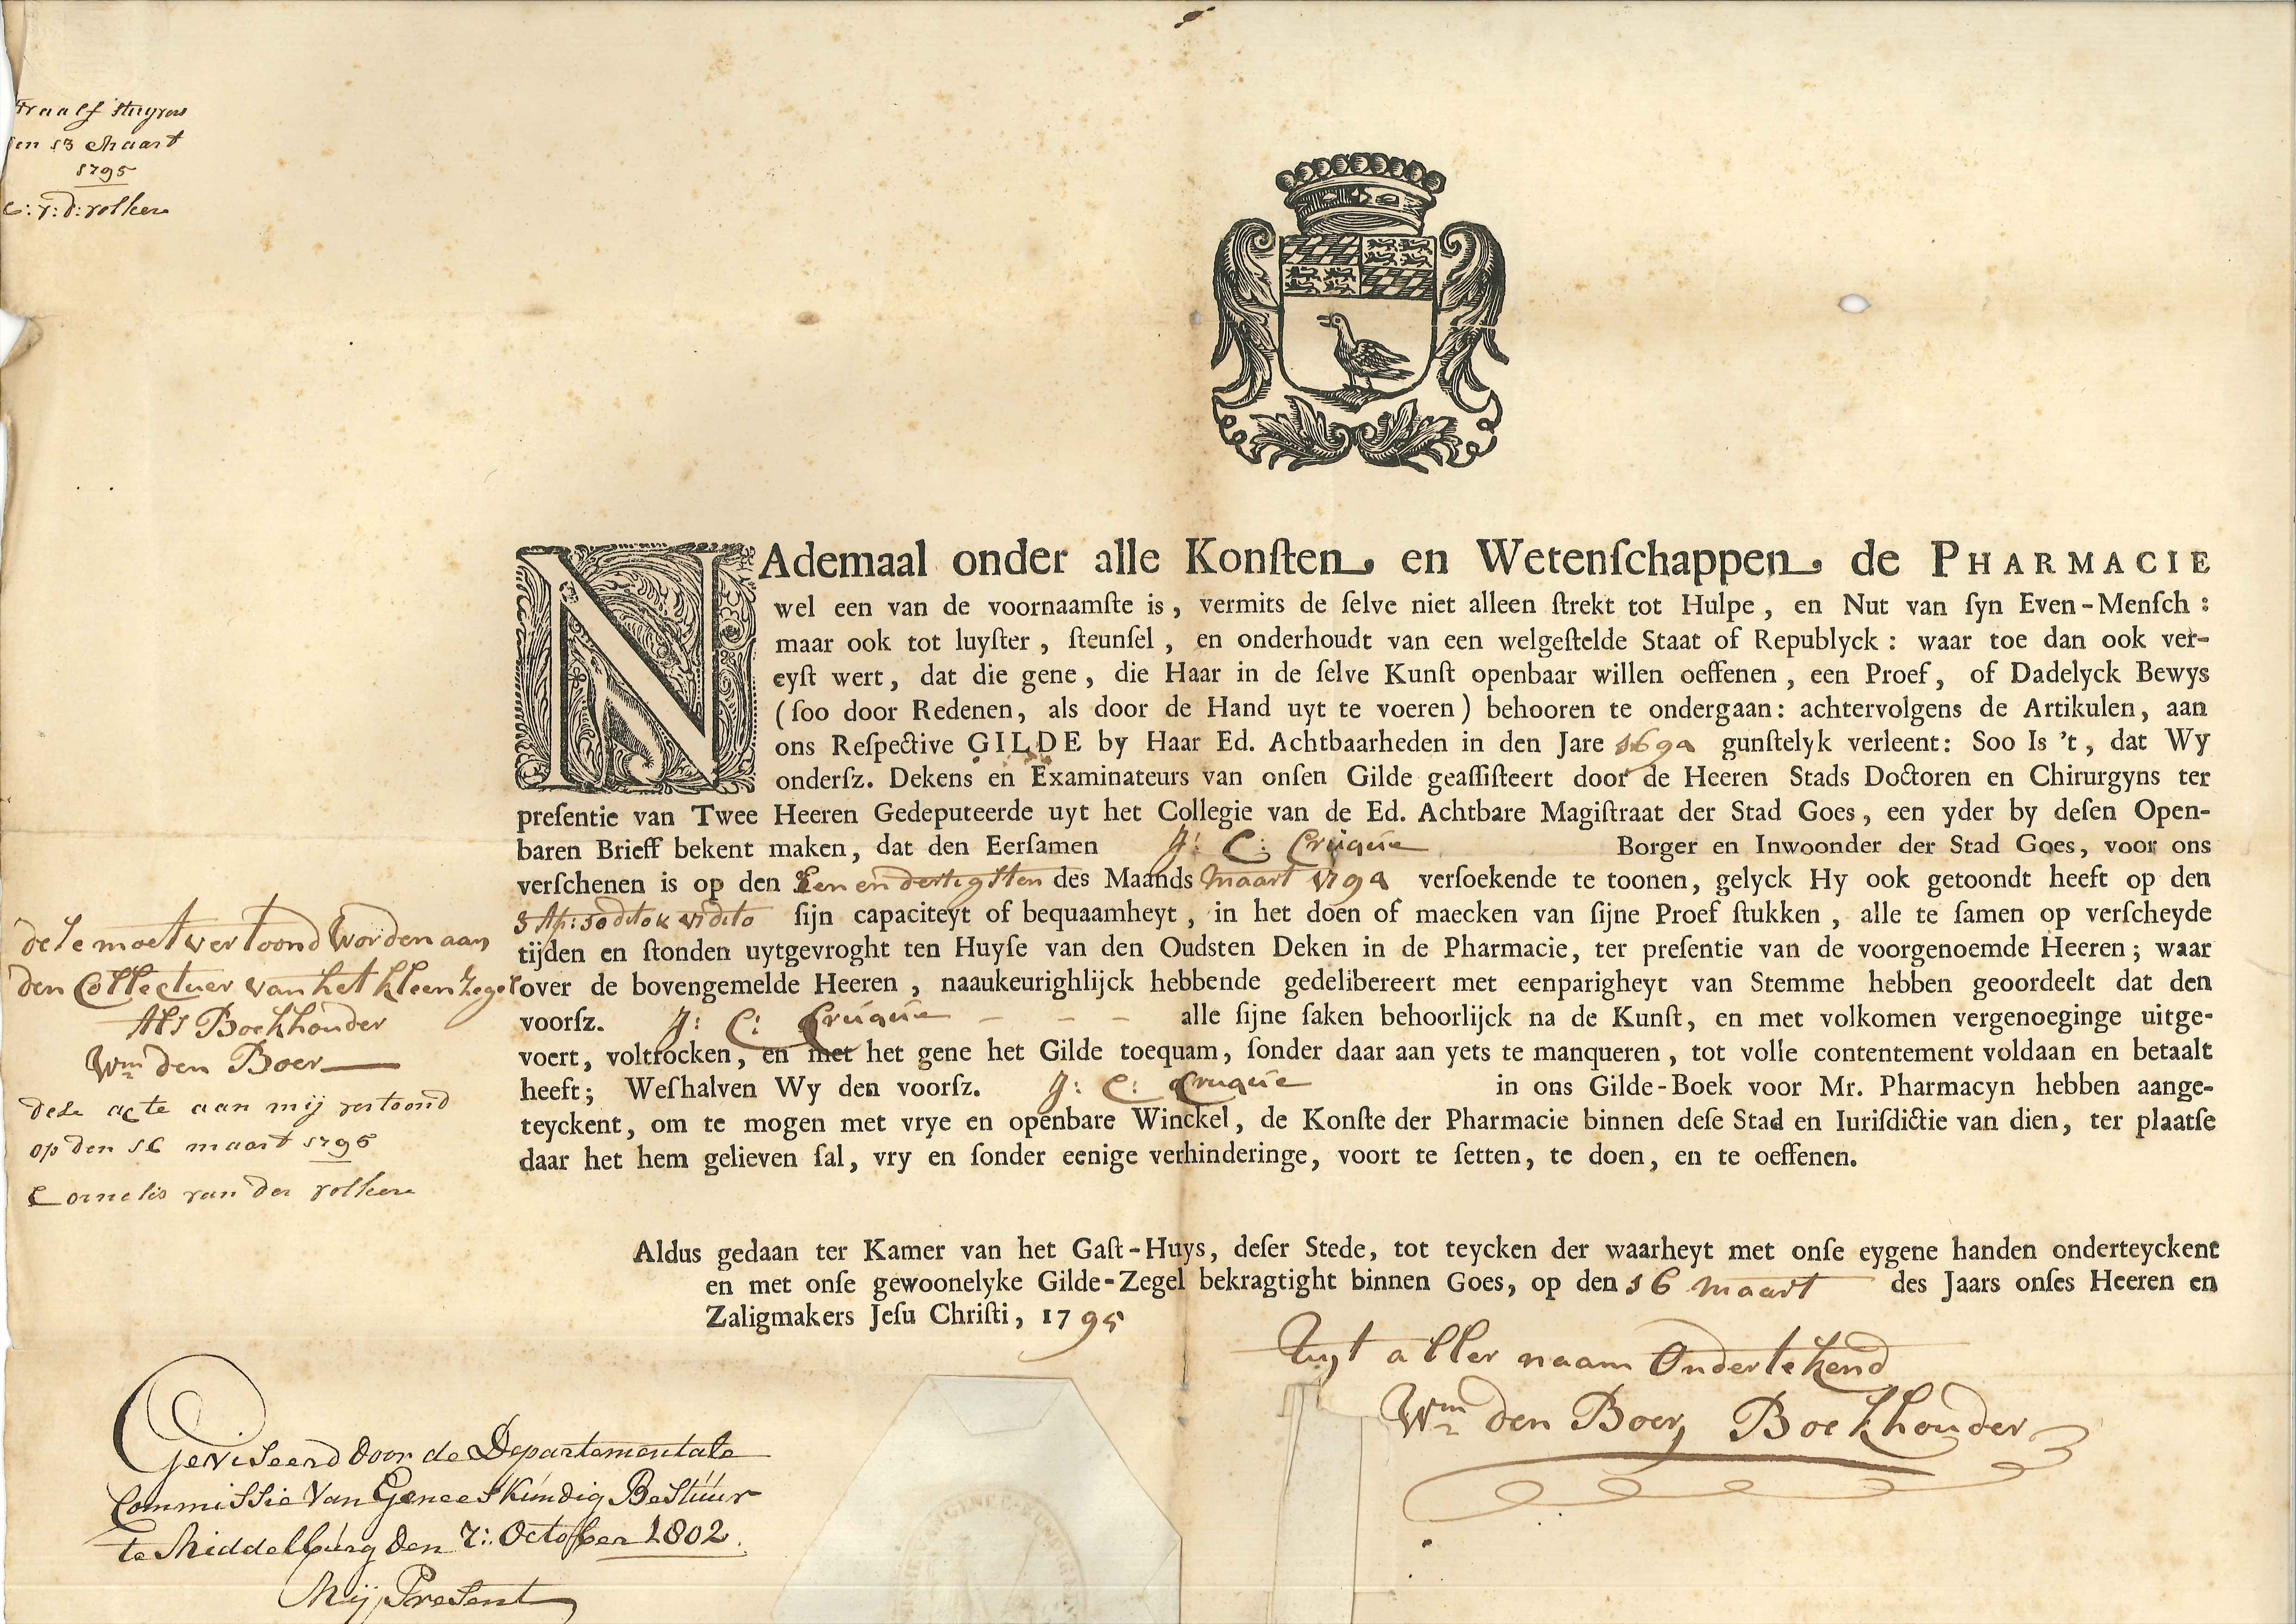 Twaalf stuyvers
den 13 Maart
1795
C: v: d: volken
NAdemaal onder alle Konſten en Wetenſchappen de PHARMACIE
wel een van de voornaamſte is, vermits de ſelve niet alleen ſtrekt tot Hulpe, en Nut van ſyn Even-Menſch:
maar ook tot luyſter, ſteunſel, en onderhoudt van een welgeſtelde Staat of Republyck: waar toe dan ook ver-
eyſt wert, dat die gene, die Haar in de ſelve Kunſt openbaar willen oeffenen, een Proef, of Dadelyck Bewys
(ſoo door Redenen, als door de Hand uyt te voeren) behooren te ondergaan: achtervolgens de Artikulen, aan
ons Reſpective GILDE by Haar Ed. Achtbaarheden in den Jare 1694 gunſtelyk verleent: Soo Is 't, dat Wy
onderſz. Dekens en Examinateurs van onſen Gilde geaſſiſteert door de Heeren Stads Doctoren en Chirurgyns ter
preſentie van Twee Heeren Gedeputeerde uyt het Collegie van de Ed. Achtbare Magiſtraat der Stad Goes, een yder by deſen Open-
baren Brieff bekent maken, dat den Eerſamen J: C: Cruquie Borger en Inwoonder der Stad Goes, voor ons
verſchenen is op den Een en dertigsten des Maands Maart 1794 verſoekende te toonen, gelyck Hy ook getoondt heeft op den
ſijn capaciteyt of bequaamheyt, in het doen of maecken van ſijne Proef ſtukken, alle te ſamen op verſcheyde
tijden en ſtonden uytgevroght ten Huyſe van den Oudsten Deken in de Pharmacie, ter preſentie van de voorgenoemde Heeren; waar
over de bovengemelde Heeren, naaukeurighlijck hebbende gedelibereert met eenparigheyt van Stemme hebben geoordeelt dat den
voorſz. J: C: Cruquie - - - alle ſijne ſaken behoorlijck na de Kunſt, en met volkomen vergenoeginge uitge-
voert, voltrocken, en met het gene het Gilde toequam, ſonder daar aan yets te manqueren, tot volle contentement voldaan en betaalt
heeft; Weſhalven Wy den voorſz. J: C: Cruquie in ons Gilde-Boek voor Mr. Pharmacyn hebben aange-
teyckent, om te mogen met vrye en openbare Winckel, de Konſte der Pharmacie binnen deſe Stad en Iurisdictie van dien, ter plaatſe
daar het hem gelieven ſal, vry en ſonder eenige verhinderinge, voort te ſetten, te doen, en te oeffenen.
dese moet vertoond worden aan
den Collectuer van het kleen zegel
Als Boekhouder
Wm den Boer
dese acte aan mij vertoond
op den 16 maart 1795
Cornelis van der volken
Aldus gedaan ter Kamer van het Gaſt-Huys, deſer Stede, tot teycken der waarheyt met onſe eygene handen onderteyckent
en met onſe gewoonelyke Gilde-Zegel bekragtight binnen Goes, op den 16 Maart des Jaars onſes Heeren en
Zaligmakers Jeſu Chriſti, 1795
Uyt aller naam Ondertekend
Wm den Boer, Boekhouder
Geviseerd door de Departementale
Commissie Van Geneeskundig Bestuur
te Middelburg den 7: October 1802.
Mij Present